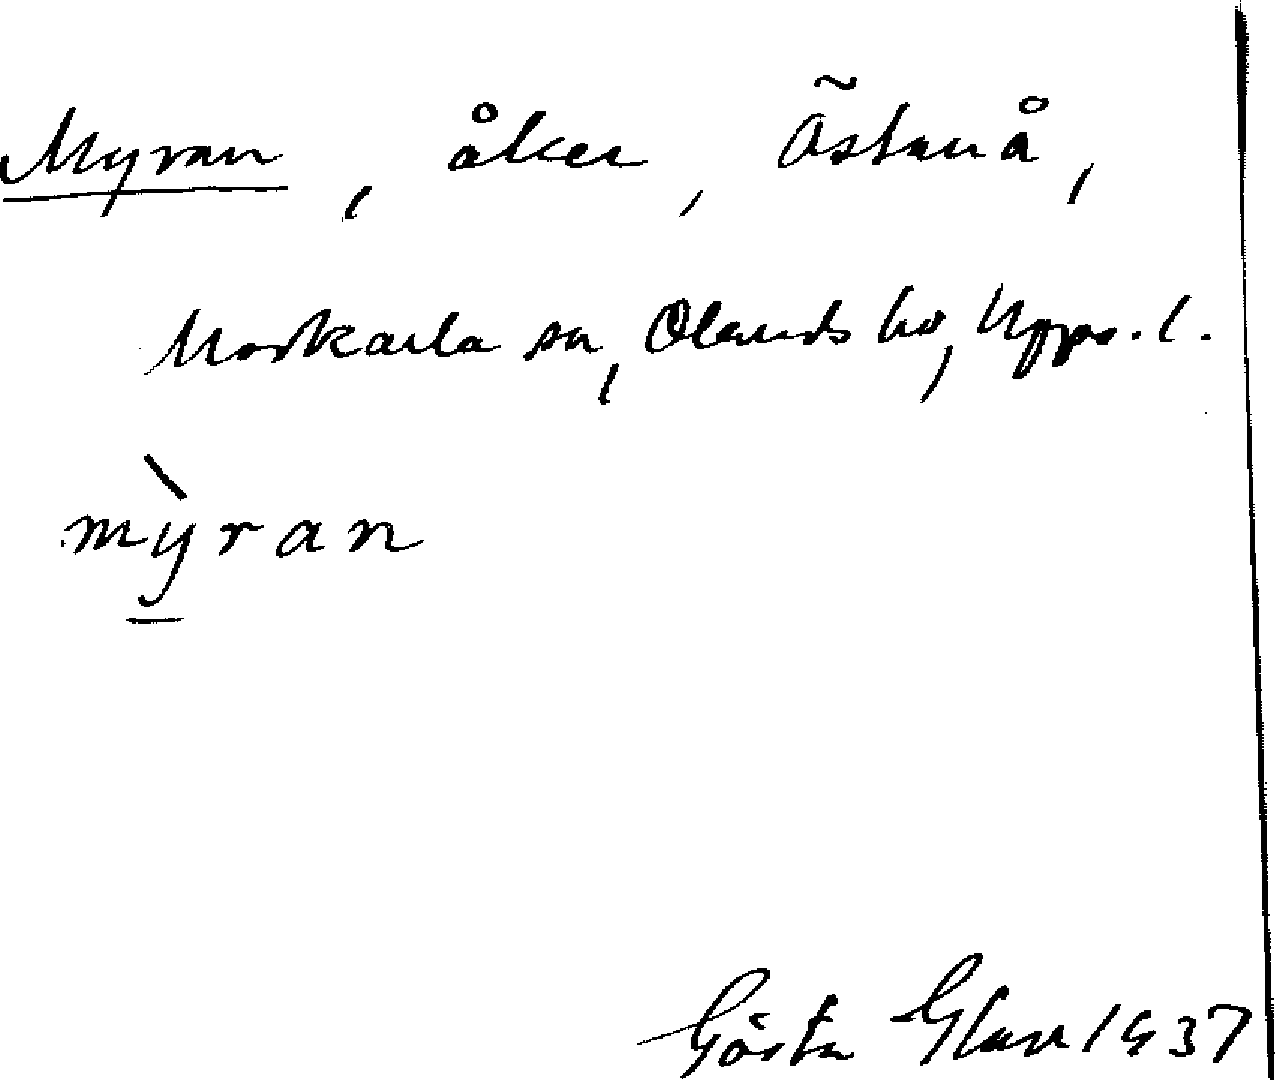 Myran, åker, Östanå,
Morkarla sn, Olands hd, Upps. l.
mỳran
Gösta Glase 1937